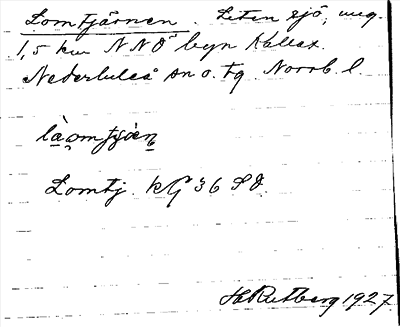 Lomtjärnen. Liten sjö, ung.
1,5 km NNO byn Kallax.
Nederluleå sn o. tg. Norrb. l.
Lomtj. kG 36 SO.
H Rutberg 1927